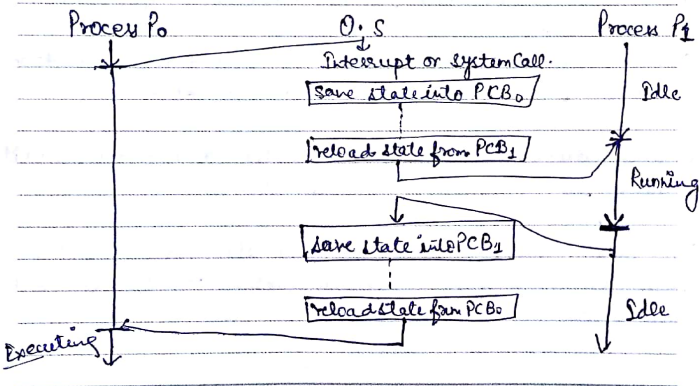 Process P0 O.S Process P1
Interrupt or system Call.
Save state into PCB0
Idle
reload state from PCB1
Running
save state into PCB1
reload state from PCB0
Idle
Executing